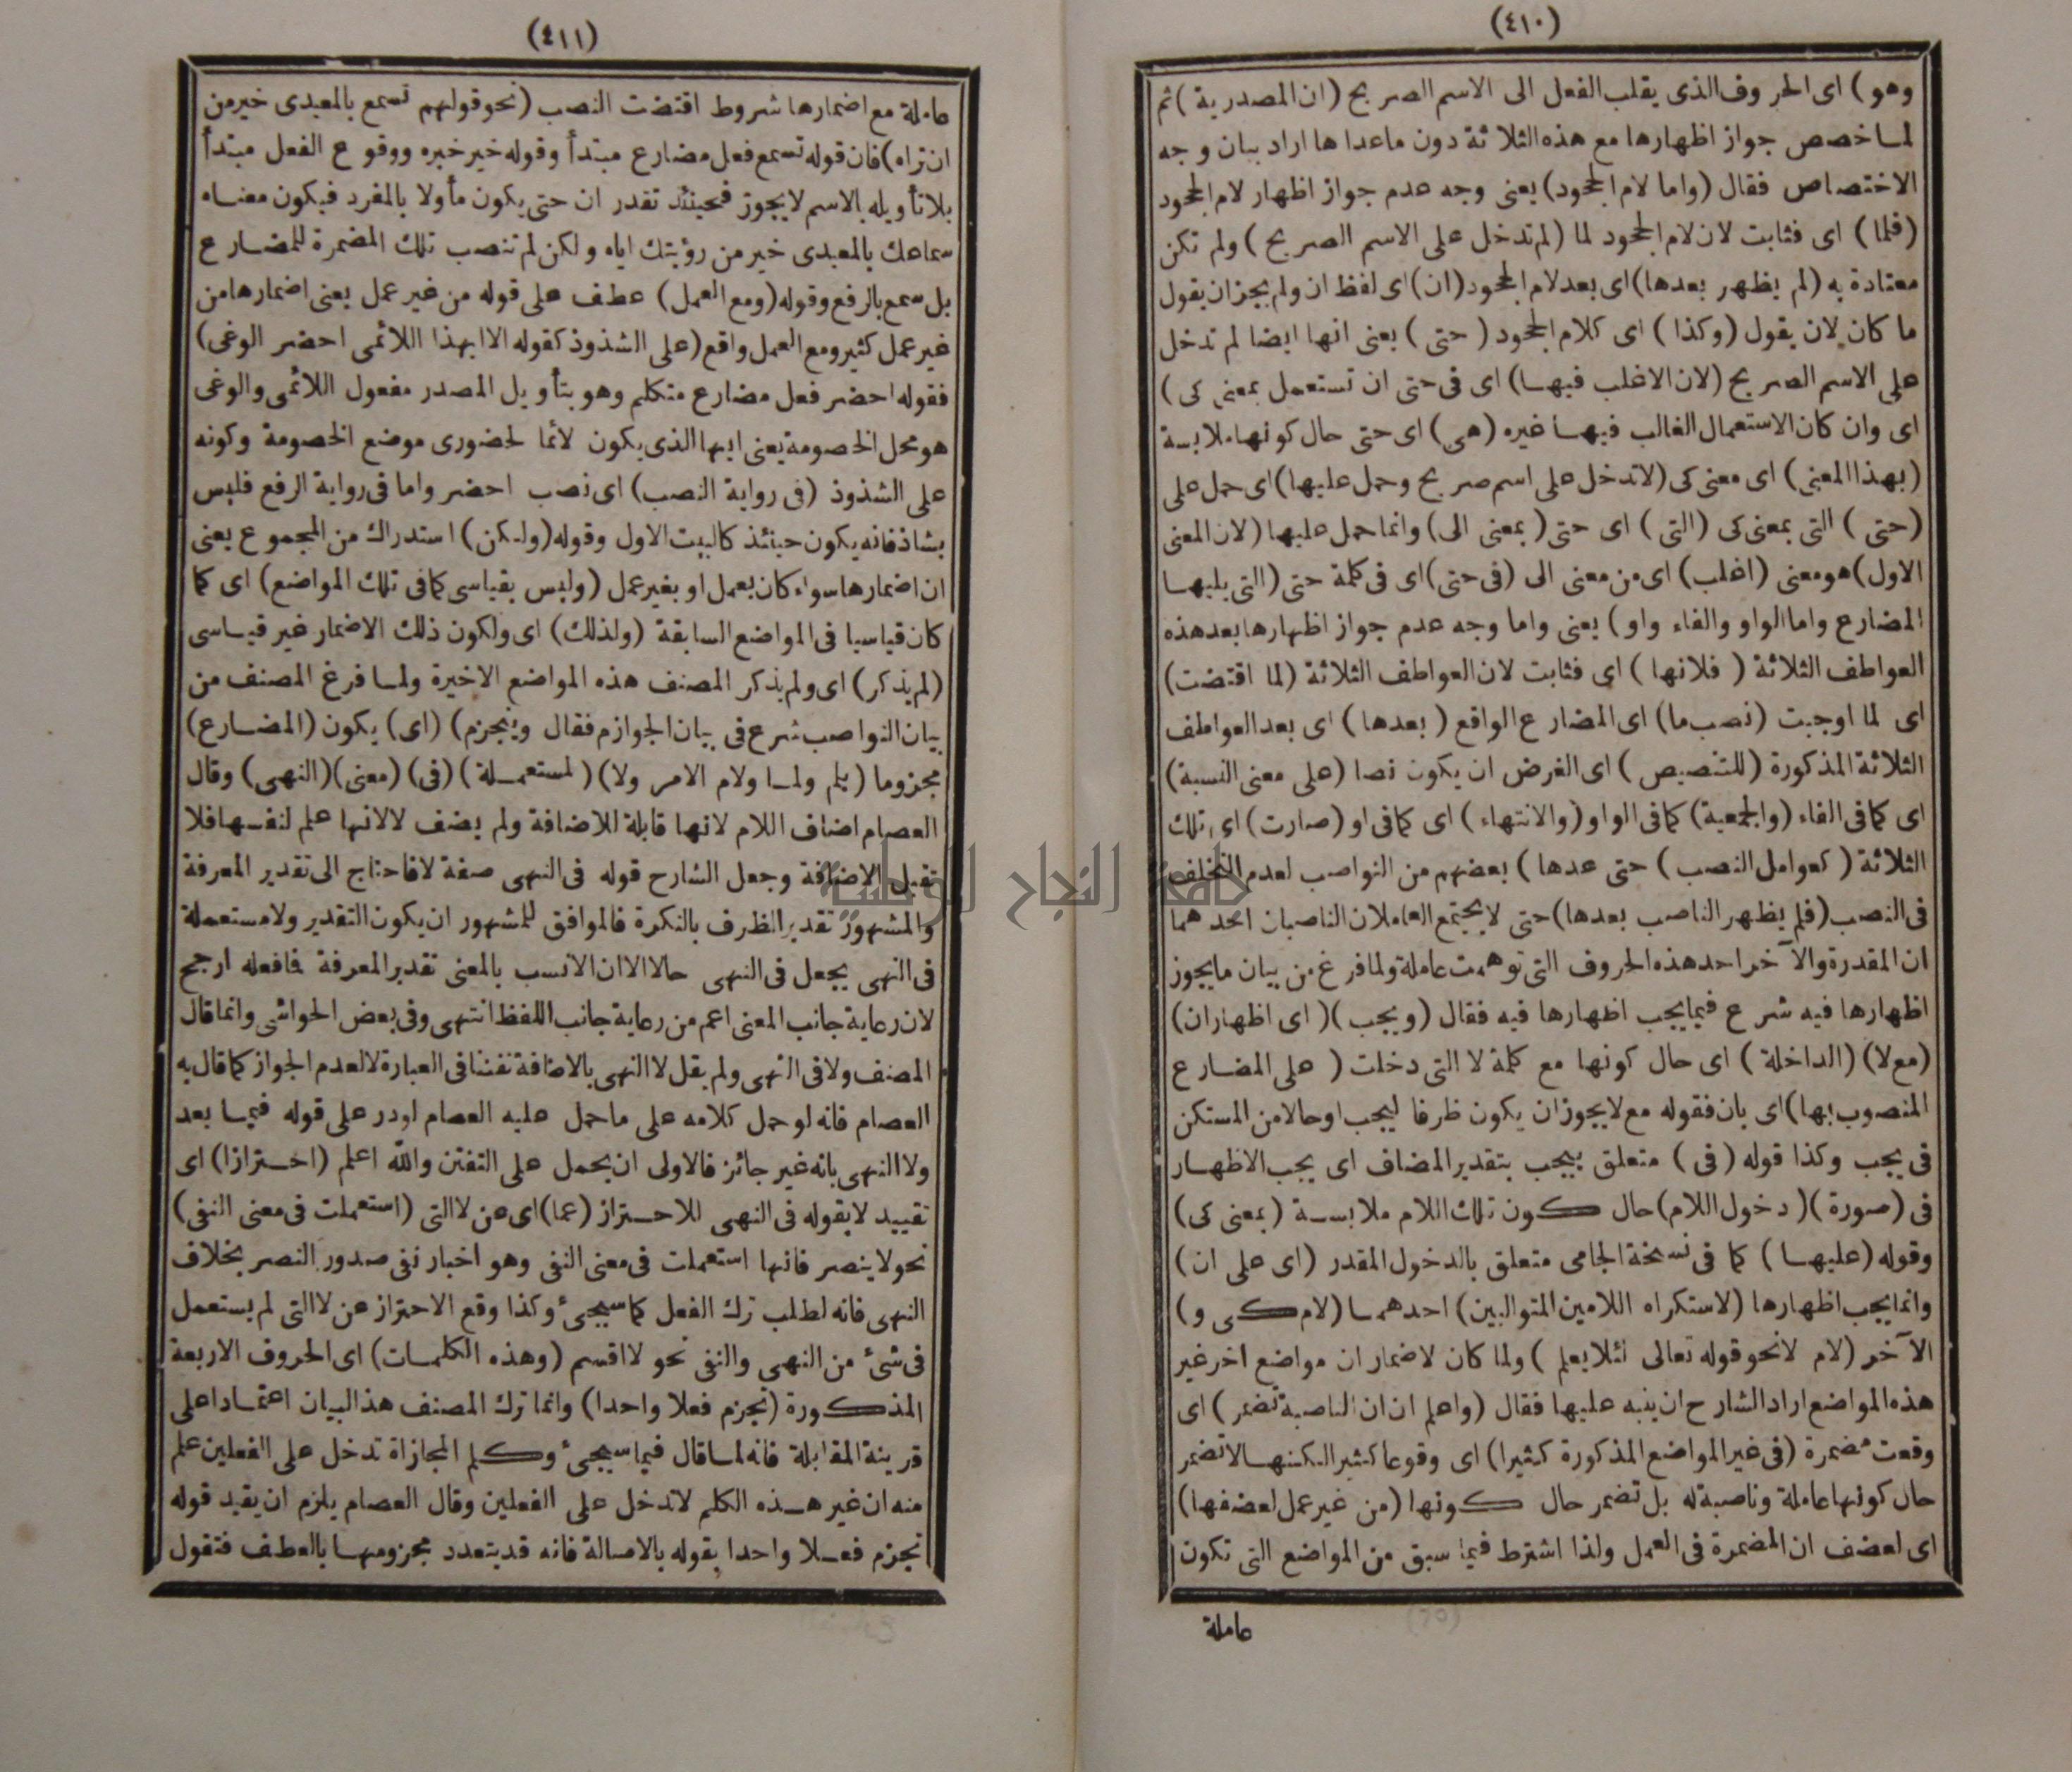 (٤١٠)
وهو) اى الحروف الذى يقلب الفعل الى الاسم الصريح (ان المصدرية) ثم
لما خصص جواز اظهارها مع هذه الثلاثة دون ماعداها اراد بيان وجه
الاختصاص فقال (واما لام الجحود) يعنى وجه عدم جواز اظهار لام الجحود
(فلما) اى فثابت لان لام الجحود لما (لم تدخل على الاسم الصريح) ولم تكن
معتادة به (لم يظهر بعدها) اى بعد لام الجحود (ان) اى لفظ ان ولم يجز ان يقول
ما كان لان يقول (وكذا) اى كلام الجحود (حتى) يعنى انها ايضا لم تدخل
على الاسم الصريح (لان الاغلب فيها) اى فى حتى ان تستعمل بمعنى كى)
اى وان كان الاستعمال الغالب فيها غيره (هى) اى حتى حال كونها ملابسة
(بهذا المعنى) اى معنى كى (لا تدخل على اسم صريح وحمل عليها) اى حمل على
(حتى) التى بمعنى كى (التى) اى حتى (بمعنى الى) وانما حمل عليها (لان المعنى
الاول) هو معنى (اغلب) اى من معنى الى (فى حتى) اى فى كلمة حتى (التى يليها
المضارع واما الواو والفاء واو) يعنى واما وجه عدم جواز اظهارها بعد هذه
العواطف الثلاثة (فلانها) اى فثابت لان العواطف الثلاثة (لما اقتضت)
اى لما اوجبت (نصب ما) اى المضارع الواقع (بعدها) اى بعد العواطف
الثلاثة المذكورة (للتنصيص) اى الغرض ان يكون نصا (على معنى النسبة)
اى كما فى الفاء (والجمعية) كما فى الواو (والانتهاء) اى كما فى او (صارت) اى تلك
الثلاثة (كعوامل النصب) حتى عدها) بعضهم من النواصب لعدم التخلف
فى النصب (فلم يظهر الناصب بعدها) حتى لا يجتمع العاملان الناصبان احدهما
ان المقدرة والآخر احد هذه الحروف التى توهمت عاملة ولما فرغ من بيان ما يجوز
اظهارها فيه شرع فيما يجب اظهارها فيه فقال (ويجب) (اى اظهار ان)
(مع لا) (الداخلة) اى حال كونها مع كلمة لا التى دخلت (على المضارع
المنصوب بها) اى بان فقوله مع لا يجوز ان يكون ظرفا ليجب او حالا من المستكن
فى يجب وكذا قوله (فى) متعلق بيجب بتقدير المضاف اى يجب الاظهار
فى (صورة) (دخول اللام) حال كون تلك اللام ملابسة (بمعنى كى)
وقوله (عليها) كما فى نسخة الجامى متعلق بالدخول المقدر (اى على ان)
وانما يجب اظهارها (لاستكراه اللامين المتواليين) احدهما (لام كى و)
الآخر (لام لا نحو قوله تعالى لئلا يعلم) ولما كان لاضمار ان مواضع اخر غير
هذه المواضع اراد الشارح ان ينبه عليها فقال (واعلم ان ان الناصبة تضمر) اى
وقعت مضمرة (فى غير المواضع المذكورة كثيرا) اى وقوعا كثيرا لكنها لا تضمر
حال كونها عاملة وناصبة له بل تضمر حال كونها (من غير عمل لضعفها)
اى لضعف ان المضمرة فى العمل ولذا اشترط فيما سبق من المواضع التى تكون
عاملة
(٤١١)
عاملة مع اضمارها شروط اقتضت النصب (نحو قولهم تسمع بالمعيدى خير من
ان تراه) فان قوله تسمع فعل مضارع مبتدأ وقوله خير خبره ووقوع الفعل مبتدأ
بلا تأويله بالاسم لا يجوز فحينئذ تقدر ان حتى يكون مأولا بالمفرد فيكون معناه
سماعك بالمعيدى خير من رؤيتك اياه ولكن لم تنصب تلك المضمرة للمضارع
بل سمع بالرفع وقوله (ومع العمل) عطف على قوله من غير عمل يعنى اضمارها من
غير عمل كثير ومع العمل واقع (على الشذوذ كقوله الا ايهذا اللائمى احضر الوغى)
فقوله احضر فعل مضارع متكلم وهو بتأويل المصدر مفعول اللائمى والوغى
هو محل الخصومة يعنى ايها الذى يكون لائما لحضورى موضع الخصومة وكونه
على الشذوذ (فى رواية النصب) اى نصب احضر واما فى رواية الرفع فليس
بشاذ فانه يكون حينئذ كالبيت الاول وقوله (ولكن) استدراك من المجموع يعنى
ان اضمارها سواء كان بعمل او بغير عمل (وليس بقياسى كما فى تلك المواضع) اى كما
كان قياسيا فى المواضع السابقة (ولذلك) اى ولكون ذلك الاضمار غير قياسى
(لم يذكر) اى ولم يذكر المصنف هذه المواضع الاخيرة ولما فرغ المصنف من
بيان النواصب شرع فى بيان الجوازم فقال وينجزم) (اى) يكون (المضارع)
مجزوما (بلم ولما ولام الامر ولا) (لمستعملة) (فى) (معنى) (النهى) وقال
العصام اضاف اللام لانها قابلة للاضافة ولم يضف لا لانها علم لنفسها فلا
تقبل الاضافة وجعل الشارح قوله فى النهى صفة لا فاحتاج الى تقدير المعرفة
والمشهور تقدير الظرف بالنكرة فالموافق للمشهور ان يكون التقدير ولا مستعملة
فى النهى يجعل فى النهى حالا الا ان الانسب بالمعنى تقدير المعرفة فافعله ارجح
لان رعاية جانب المعنى اهم من رعاية جانب اللفظ انتهى وفى بعض الحواشى وانما قال
المصنف ولا فى النهى ولم يقل لا النهى بالاضافة تفننا فى العبارة لا لعدم الجواز كما قال به
العصام فانه لو حمل كلامه على ما حمل عليه العصام اورد على قوله فيما بعد
ولا النهى بانه غير جائز فالاولى ان يحمل على التفنن والله اعلم (احترازا) اى
تقييد لا بقوله فى النهى للاحتراز (عما) اى عن لا التى (استعملت فى معنى النفى)
نحو لا ينصر فانها استعملت فى معنى النفى وهو اخبار نفى صدور النصر بخلاف
النهى فانه لطلب ترك الفعل كما سيجىء وكذا وقع الاحتراز عن لا التى لم يستعمل
فى شىء من النهى والنفى نحو لا اقسم (وهذه الكلمات) اى الحروف الاربعة
المذكورة (تجزم فعلا واحدا) وانما ترك المصنف هذا البيان اعتمادا على
قرينة المقابلة فانه لما قال فيما سيجىء وكلم المجازاة تدخل على الفعلين علم
منه ان غير هذه الكلم لا تدخل على الفعلين وقال العصام يلزم ان يقيد قوله
تجزم فعلا واحدا بقوله بالاصالة فانه قد يتعدد مجزومها بالعطف فتقول
جامعة النجاح الوطنية